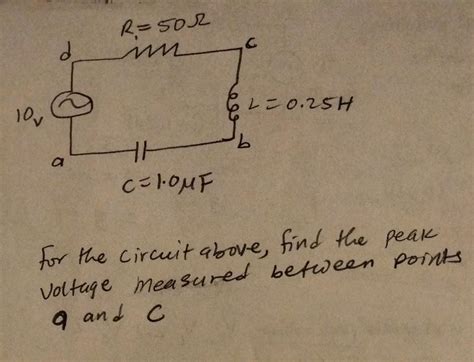 R = 50Ω
d
c
10v
L = 0.25H
a
b
C = 1.0μF
For the circuit above, find the peak
voltage measured between points
a and C